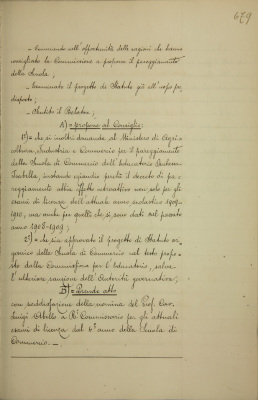 679
— Convenendo nell'opportunità delle ragioni che hanno
consigliato la Commissione a proporre il pareggiamento
della Scuola;
— Esaminato il progetto di Statuto già all'uopo pre,
disposto;
— Udito il Relatore;
A) = propone al Consiglio:
1°) = che si inoltri domanda al Ministero di Agri,
coltura, Industria e Commercio per il pareggiamento
della Scuola di Commercio dell'Educatorio
Isabella, instando quando perchè il decreto di pa,
reggiamento abbia effetto retroattivo non solo per gli
esami di licenza dell'attuale anno scolastico 1909-
1910, ma anche per quelli che si sono dati nel passato
anno 1908-1909;
2°) = che sia approvato il progetto di Statuto or,
ganico della Scuola di Commercio nel testo propo,
sto dalla Commissione per l'Educatorio, salva
l'ulteriore sanzione dell'Autorità governativa;
B) = Prende atto
con soddisfazione della nomina del Prof. Cav.
Luigi Abello a R° Commissario per gli attuali
esami di licenza del 4° anno della Scuola di
Commercio. —